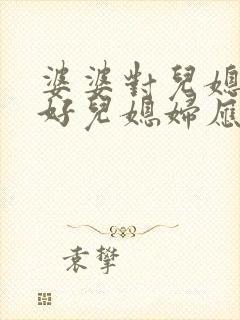 婆婆對兒媳
好兒媳婦應
袁攀